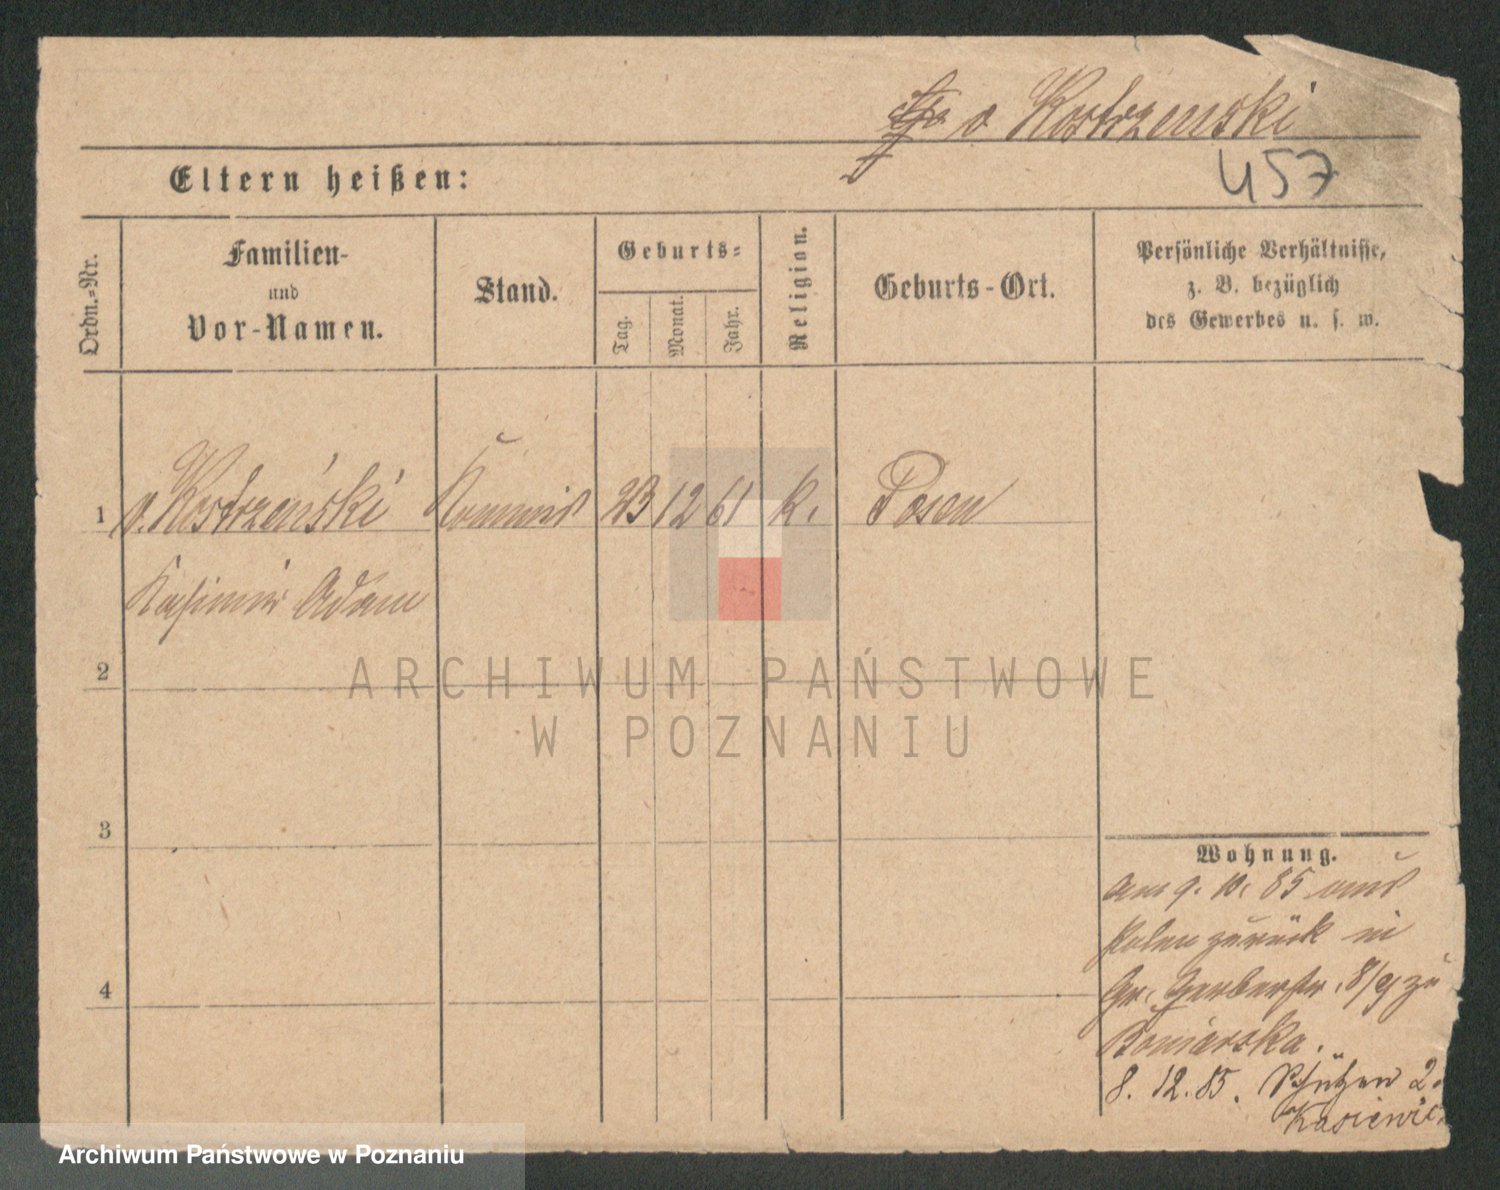 v Kostrzenski
457
Eltern heißen:
Ordn.-Nr.
Familien-
und
Vor-Namen.
Stand.
Geburts-
Tag.
Monat.
Jahr.
Religion.
Geburts-Ort.
Persönliche Verhältnisse,
z. B. bezüglich
des Gewerbes u. s. w.
1 v. Kostrzeński Kommis 23 12 61 k. Posen
Kasimir Adam
2
3
4
Wohnung.
am 9. 10. 85 aus
Polen zurück in
Gr. Gerberstr. 8/9 zu
Boniarska.
8. 12. 85. Schützen 2.
Kasiewicz
ARCHIWUM PAŃSTWOWE
W POZNANIU
Archiwum Państwowe w Poznaniu